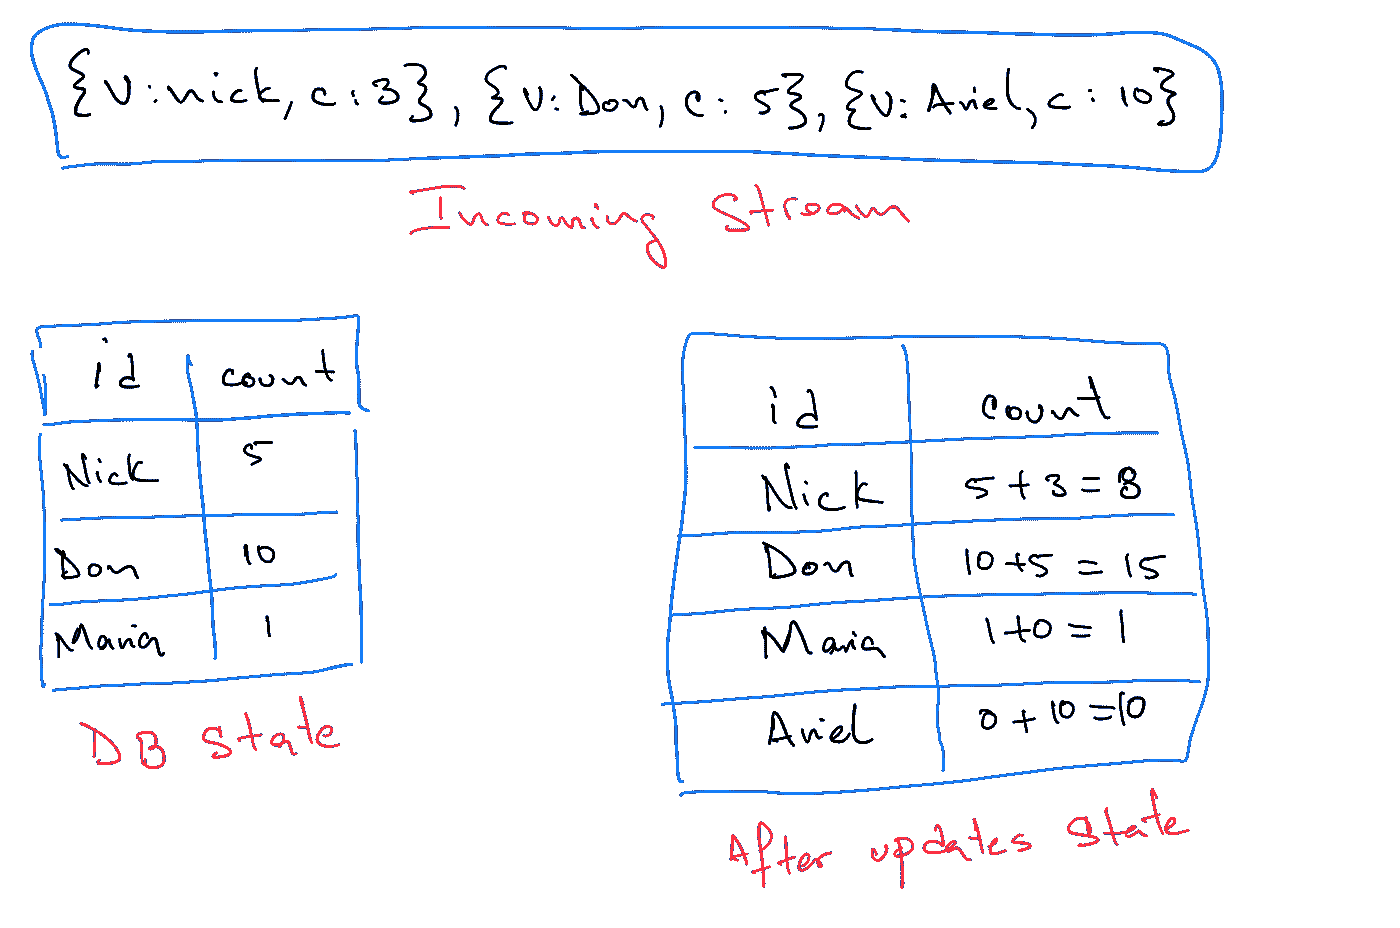 {v:nick, c:3}, {v:Don, c:5}, {v:Ariel, c:10}
Incoming Stream
id count
Nick 5
Don 10
Maria 1
DB State
id count
Nick 5+3=8
Don 10+5=15
Maria 1+0=1
Ariel 0+10=10
After updates State